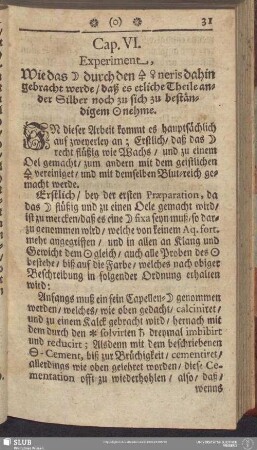 (o) 31
Cap. VI.
Experiment.
Wie das ☽ durch den 🜍 ♀neris dahin
gebracht werde / daß es etliche Theile an-
der Silber noch zu sich zu bestän-
digem ☉ nehme.
IN dieser Arbeit kommt es hauptsächlich
auf zweyerley an; Erstlich / daß das ☽
recht flüßig wie Wachs / und zu einem
Oel gemacht / zum andern mit dem geistlichen
🜍 vereiniget / und mit demselben Blut-reich ge-
macht werde.
Erstlich / bey der ersten Præparation, da
das ☽ flüßig und zu einen Oele gemacht wird /
ist zu mercken / daß es eine ☽ fixa seyn muß / so dar-
zu genommen wird / welche von keinem Aq. fort.
mehr angegriffen / und in allen an Klang und
Gewicht dem ☉ gleich / auch alle Proben des ☉
bestehe / biß auf die Farbe / welches nach obiger
Beschreibung in folgender Ordnung erhalten
wird:
Anfangs muß ein fein Capellen-☽ genommen
werden / welches / wie oben gedacht / calcinitet /
und zu einem Kalck gebracht wird / hernach mit
dem durch den * solvirten ♄ dreymal imbibirt
und reducirt; Alsdenn mit dem beschriebenen
-Cement, biß zur Brüchigkeit / cementiret /
allerdings wie oben gelehret worden / diese Ce-
mentation offt zu wiederhohlen / also / daß /
wenns
SLUB